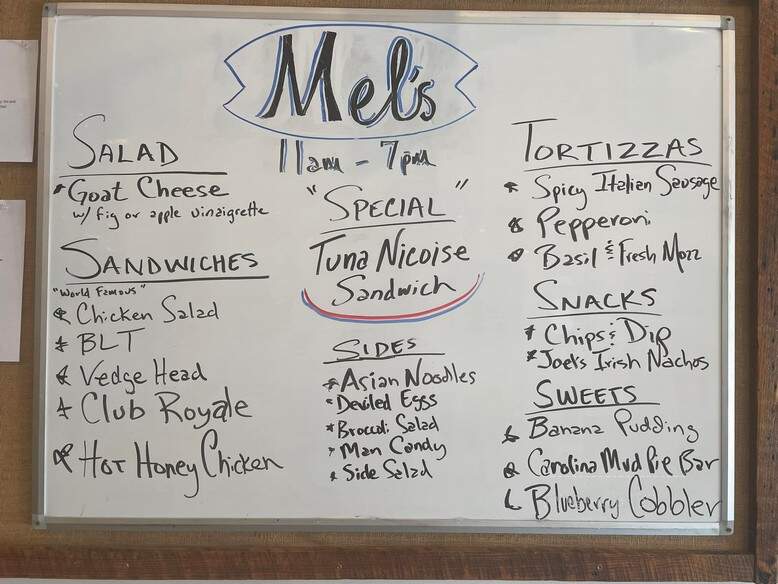 Mel's
11am - 7pm
SALAD
Goat Cheese
w/ fig or apple vinaigrette
SANDWICHES
"World Famous"
Chicken Salad
BLT
Vedge Head
Club Royale
Hot Honey Chicken
"SPECIAL"
Tuna Nicoise
Sandwich
SIDES
Asian Noodles
Deviled Eggs
Broccoli Salad
Man Candy
Side Salad
TORTIZZAS
Spicy Italian Sausage
Pepperoni
Basil & Fresh Mozz
SNACKS
Chips & Dip
Joel's Irish Nachos
SWEETS
Banana Pudding
Carolina Mud Pie Bar
Blueberry Cobbler